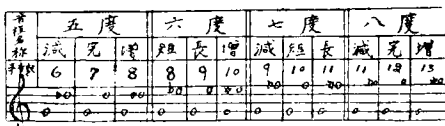 音程名称 五度 六度 七度 八度
減 完 增 短 長 增 減 短 長 減 完 增
半音数 6 7 8 8 9 10 9 10 11 11 12 13